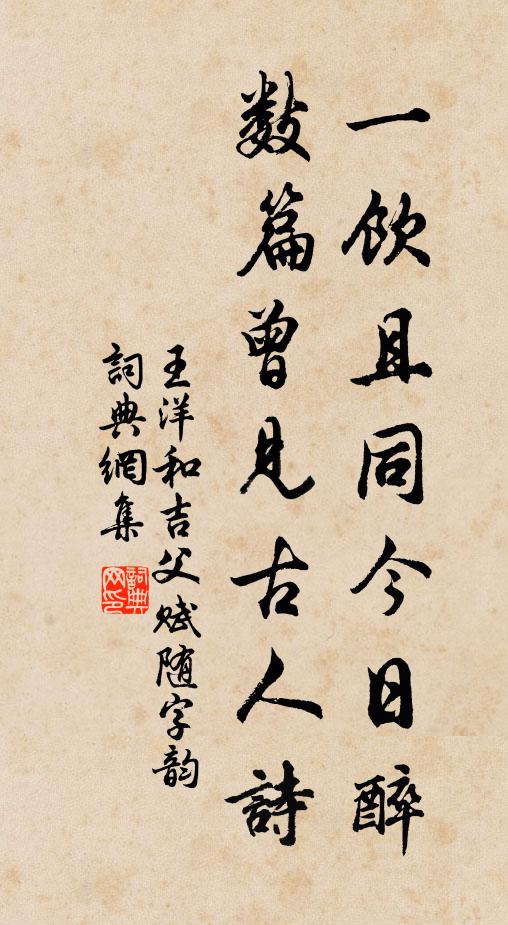 一飲且同今日醉
数篇曾見古人詩
王洋和吉父賦随字韵
詞典網集
詞典
网印